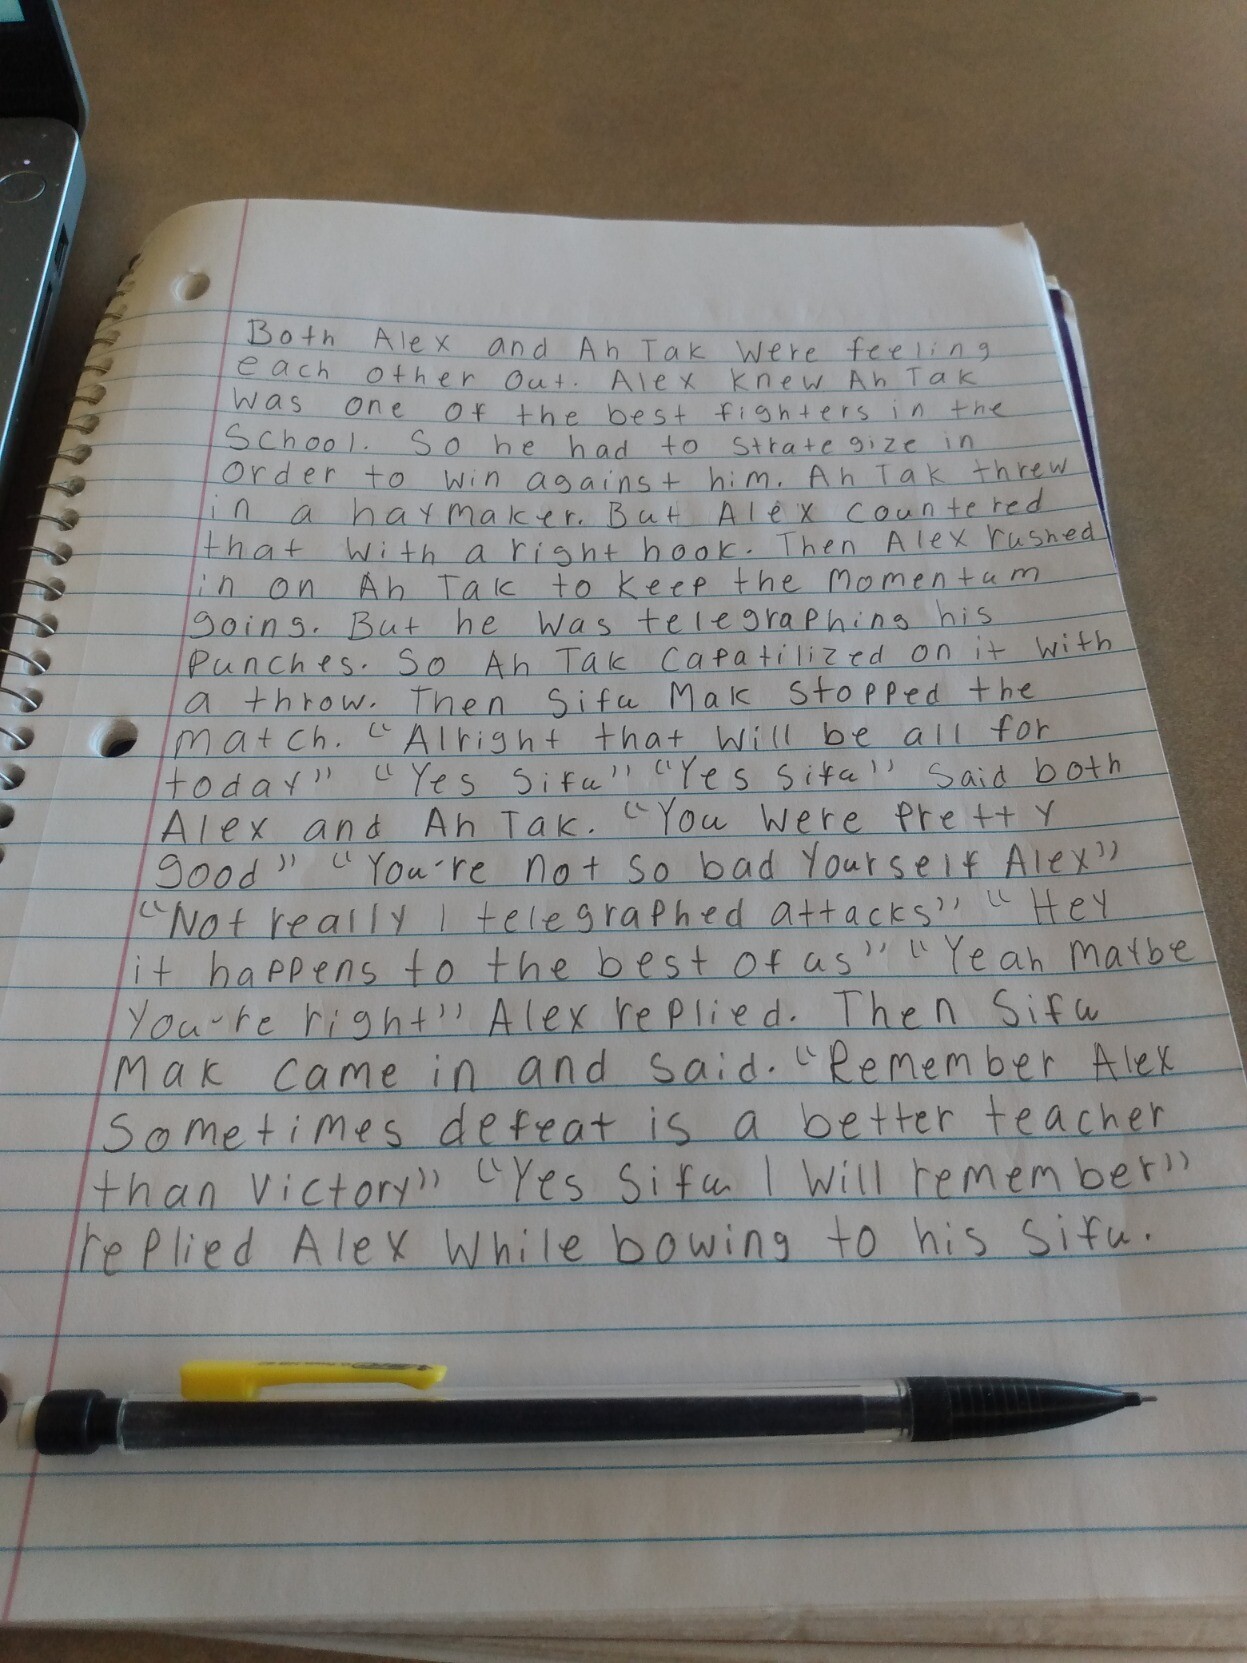 Both Alex and Ah Tak were feeling
each other out. Alex knew Ah Tak
was one of the best fighters in the
School. So he had to strategize in
order to win against him. Ah Tak threw
in a haymaker. But Alex countered
that with a right hook. Then Alex rushed
in on Ah Tak to keep the momentum
going. But he was telegraphing his
punches. So Ah Tak capatilized on it with
a throw. Then Sifu Mak stopped the
match. “Alright that will be all for
today” “Yes Sifu” “Yes Sifu” said both
Alex and Ah Tak. “You were pretty
good” “You're not so bad yourself Alex”
“Not really I telegraphed attacks” “Hey
it happens to the best of us” “Yeah maybe
you're right” Alex replied. Then Sifu
Mak came in and said. “Remember Alex
sometimes defeat is a better teacher
than victory” “Yes Sifu I will remember”
replied Alex while bowing to his Sifu.